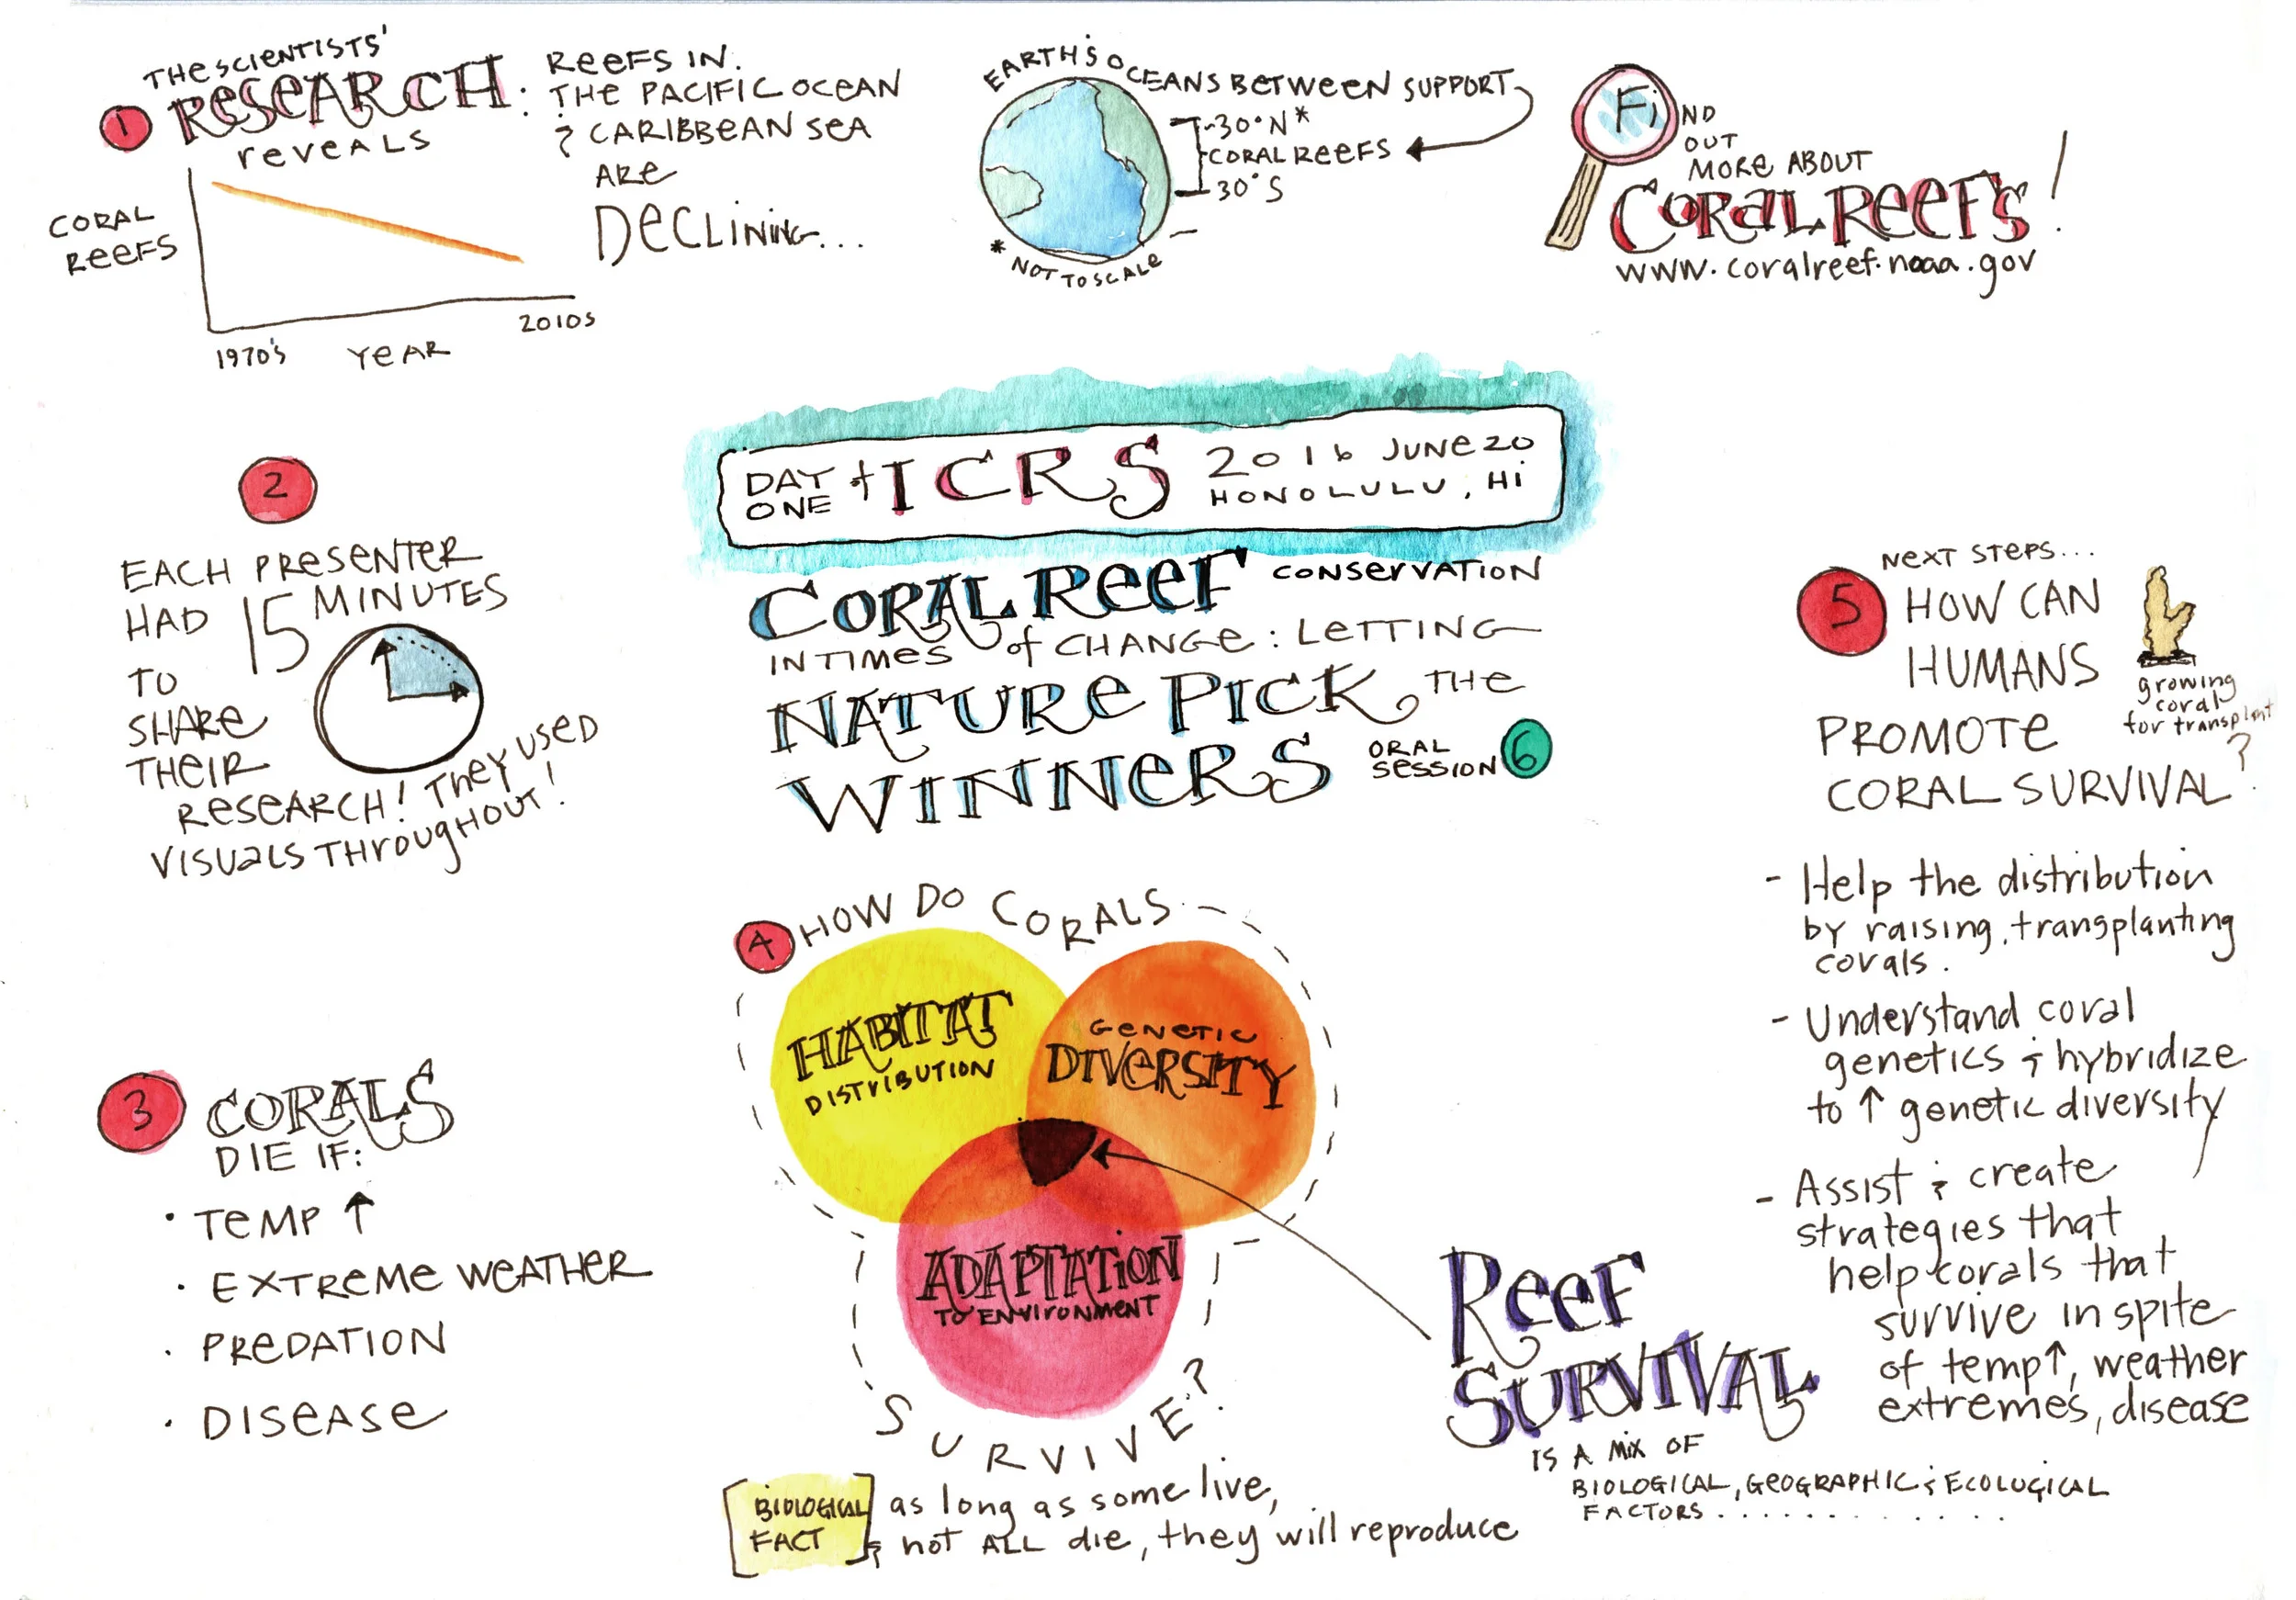 THE SCIENTISTS'
1 RESEARCH:
REVEALS
CORAL
REEFS
1970's YEAR 2010s
REEFS IN.
THE PACIFIC OCEAN
& CARIBBEAN SEA
ARE
DECLINING...
EARTH'S OCEANS BETWEEN SUPPORT
~30°N*
CORAL REEFS
30°S
* NOT TO SCALE
FIND
OUT
MORE ABOUT
CORAL REEFS!
www.coralreef.noaa.gov
DAY ONE of ICRS
2016 JUNE 20
HONOLULU, HI
CORAL REEF CONSERVATION
IN TIMES of CHANGE: LETTING
NATURE PICK THE
WINNERS
ORAL
SESSION 6
2
EACH PRESENTER
HAD 15 MINUTES
TO
SHARE
THEIR
RESEARCH! THEY USED
VISUALS THROUGHOUT!
3 CORALS
DIE IF:
• TEMP ↑
• EXTREME WEATHER
• PREDATION
• DISEASE
4 HOW DO CORALS
HABITAT
DISTRIBUTION
GENETIC
DIVERSITY
ADAPTATION
TO ENVIRONMENT
SURVIVE?
BIOLOGICAL
FACT
as long as some live,
& not ALL die, they will reproduce
REEF
SURVIVAL
IS A MIX OF
BIOLOGICAL, GEOGRAPHIC & ECOLOGICAL
FACTORS............
NEXT STEPS...
5 HOW CAN
HUMANS
PROMOTE
CORAL SURVIVAL?
growing
coral
for transplant
- Help the distribution
by raising, transplanting
corals.
- Understand coral
genetics & hybridize
to ↑ genetic diversity
- Assist & create
strategies that
help corals that
survive in spite
of temp↑, weather
extremes, disease